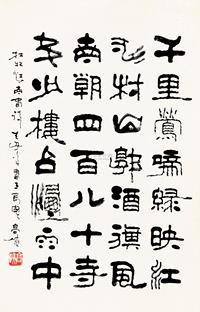 千里鶯啼綠映江
水村山郭酒旗風
南朝四百八十寺
多少樓台煙雨中